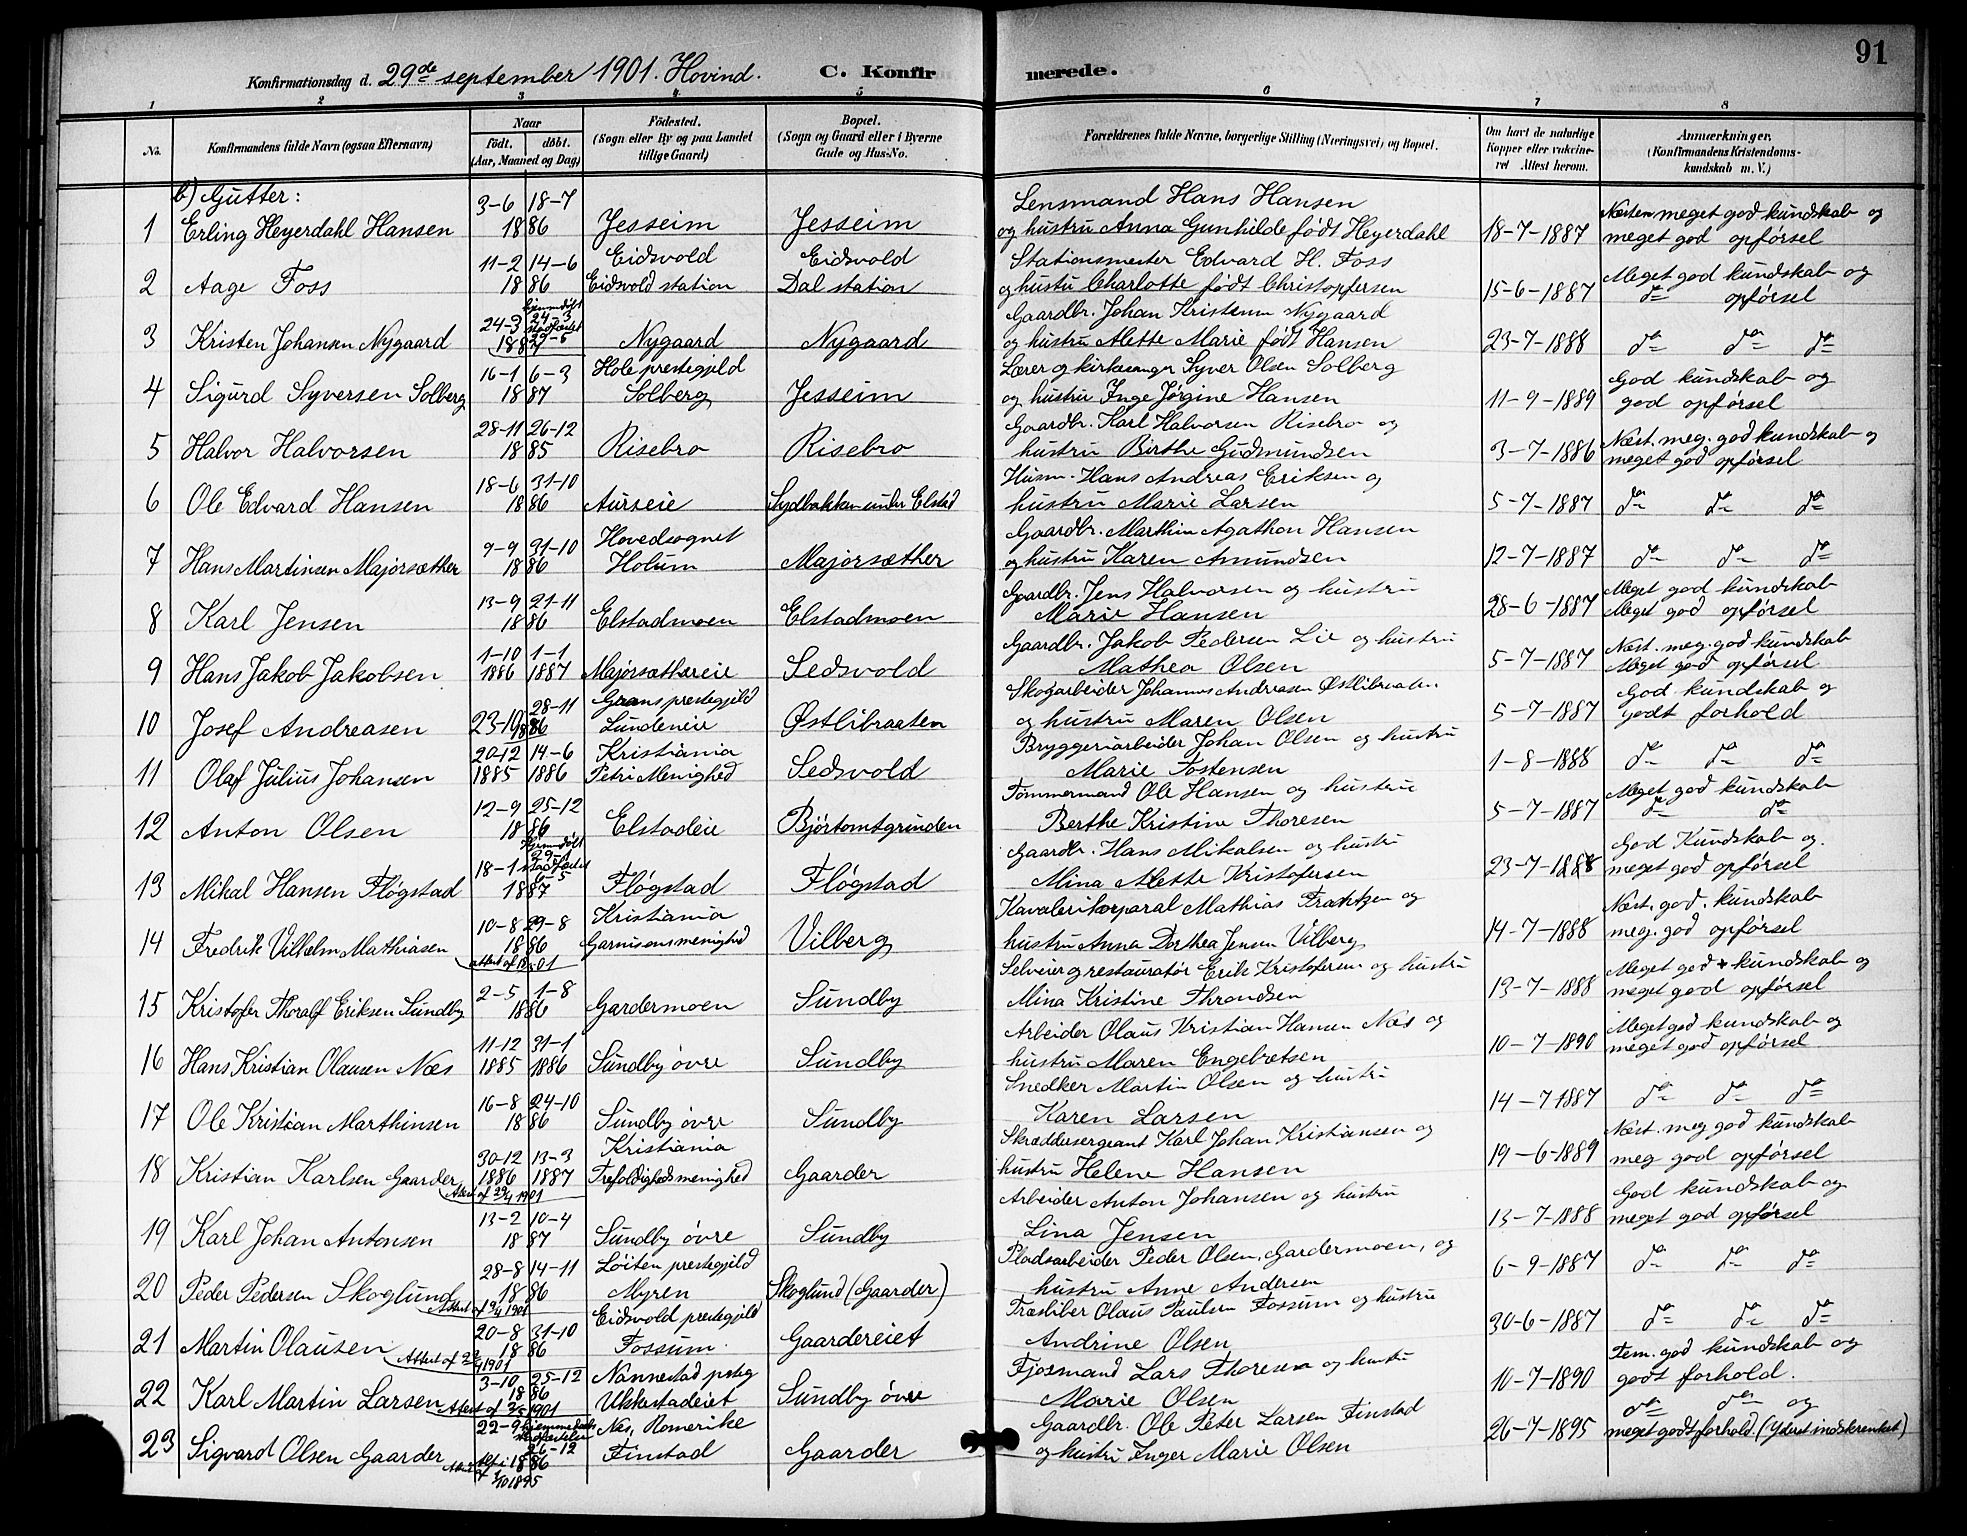 91
Konfirmationsdag d. 29de september 1901. Hovind. C. Konfirmerede.
1 2 3 4 5 6 7 8
No. Konfirmandens fulde Navn (ogsaa Efternavn) Naar født. døbt. (Aar, Maaned og Dag) Fødested. (Sogn eller By og paa Landet tillige Gaard) Bopæl. (Sogn og Gaard eller i Byerne Gade og Hus-No. Forældrenes fulde Navne, borgerlige Stilling (Næringsvei) og Bopæl. Om havt de naturlige Kopper eller vakcineret Attest herom. Anmærkninger. (Konfirmandens Kristendomskundskab m. V.)
b) Gutter:
1 Erling Heyerdahl Hansen 3-6 18-7 1886 Jesseim Jesseim Lensmand Hans Hansen og hustru Anna Gunhilde født Heyerdahl 18-7-1887 Næsten meget god kundskab og meget god opførsel
2 Aage Foss 11-2 14-6 1886 Eidsvold Eidsvold station Eidsvold Dal station Stationsmester Edvard H. Foss og hustu Charlotte født Christopfersen 15-6-1887 Meget god kundskab og do opførsel
3 Kristen Johansen Nygaard 24-3 hjemmedøbt 24-3 stadfæstet 29-6 1887 Nygaard Nygaard Gaardbr. Johan Kristensen Nygaard og hustru Alette Marie født Hansen 23-7-1888 do do do
4 Sigurd Syversen Solberg 16-1 6-3 1887 Hole prestegjeld Solberg Jesseim Lærer og kirkesanger Syver Olsen Solberg og hustru Inge Jørgine Hansen 11-9-1889 God kundskab og god opførsel
5 Halvor Halvorsen 28-11 26-12 1885 Risebro Risebro Gaardbr. Karl Halvorsen Risebro og hustru Birthe Gudmundsen 3-7-1886 Næst. meg. god kundskab og meget god opførsel
6 Ole Edvard Hansen 18-6 31-10 1886 Aurseie Sydbakken under Elstad Husm. Hans Andreas Eriksen og hustru Marie Larsen 5-7-1887 do do do
7 Hans Martinsen Majorsæther 9-9 31-10 1886 Hovedsognet Holum Majorsæther Gaardbr. Marthin Agathon Hansen og hustru Karen Amundsen 12-7-1887 do do do
8 Karl Jensen 13-9 21-11 1886 Elstadmoen Elstadmoen Gaardbr. Jens Halvorsen og hustru Marie Hansen 28-6-1887 Meget god kundskab Meget god opførsel
9 Hans Jakob Jakobsen 1-10 1886 1-1 1887 Majorsæthereie Sedsvold Gaardbr. Jakob Pedersen Lie og hustru Mathea Olsen 5-7-1887 Næst. meg. god kundskab Meget god opførsel
10 Josef Andreasen 23-10 28-11 1886 Grans prestegjeld Lundeneie Østlibraaten Skogarbeider Johannes Andreasen Østlibraaten og hustru Maren Olsen 5-7-1887 God kundskab og godt forhold
11 Olaf Julius Johansen 20-12 1885 14-6 1886 Kristiania Petri Menighed Sedsvold Bryggeriarbeider Johan Olsen og hustru Marie Tostensen 1-8-1888 do do do
12 Anton Olsen 12-9 25-12 1886 Elstadeie Bjørtomtgrunden Tømmermand Ole Hansen og hustrue Berthe Kristine Thoresen 5-7-1887 Meget god kundskab do do
13 Mikal Hansen Fløgstad 18-1 hjemmedøbt stadfæstet 6-5 1887 Fløgstad Fløgstad Gaardbr. Hans Mikalsen og hustru Mina Alette Kristofersen 23-7-1888 God Kundskab og. meget god opførsel
14 Fredrik Vilhelm Mathiasen 10-8 29-8 1886 Kristiania Garnisonsmenighed Vilberg Kavalerikorporal Mathias Frantzen og hustru Anna Dorthea Jensen Vilberg 14-7-1888 Næst. god. kundskab meg. god opførsel
15 Kristofer Thoralf Eriksen Sundby 2-5 1-8 1886 Gardermoen Sundby Selveier og restauratør Erik Kristofersen og hustru Mina Kristine Throndsen 13-7-1888 Meget god kundskab og meget god opførsel
16 Hans Kristian Olausen Næs 11-12 1885 31-1 1886 Sundby øvre Sundby Arbeider Olaus Kristian Hansen Næs og hustru Maren Engebretsen 10-7-1890 Meget god kundskab og meget god opførsel
17 Ole Kristian Marthinsen 16-8 24-10 1886 Sundby øvre Sundby Snedker Martin Olsen og hustru Karen Larsen 14-7 1887 do do do
18 Kristian Karlsen Gaarder 30-12 1886 13-3 1887 Kristiania Trefoldighedsmenighed Gaarder Skræddersergeant Karl Johan Kristiansen og hustru Helene Hansen 19-6-1889 Næst. meg god kundskab meg god opførsel
19 Karl Johan Antonsen 13-2 10-4 1887 Sundby øvre Sundby Arbeider Anton Johansen og hustru Lina Jensen 13-7-1888 God kundskab og meget god opførsel
20 Peder Pedersen Skoglund 28-8 14-11 1886 Løiten prestegjeld Myren Skoglund (Gaarder) Pladsarbeider Peder Olsen, Gardermoen, og hustru Anne Andersen 6-9-1887 do do do
21 Martin Olausen 20-8 31-10 1886 Eidsvold prestegjeld Fossum. Gaardereiet Træsliber Olaus Paulsen Fossum og hustru Andrine Olsen 30-6-1887 do do do
22 Karl Martin Larsen 3-10 25-12 1886 Nannestad prstg Ukkestadeiet Sundby øvre Fjøsmand Lars Thoresen og hustru Marie Olsen 10-7-1890 Tem. god kundskab og godt forhold.
23 Sigvard Olsen Gaarder 22-9 26-12 1886 Nes, Romerike Finstad Gaarder Gaardbr. Ole Peter Larsen Finstad og hustru Inger Marie Olsen 26-7-1895 do do og meget godt forhold. (Yderst indskrenket)